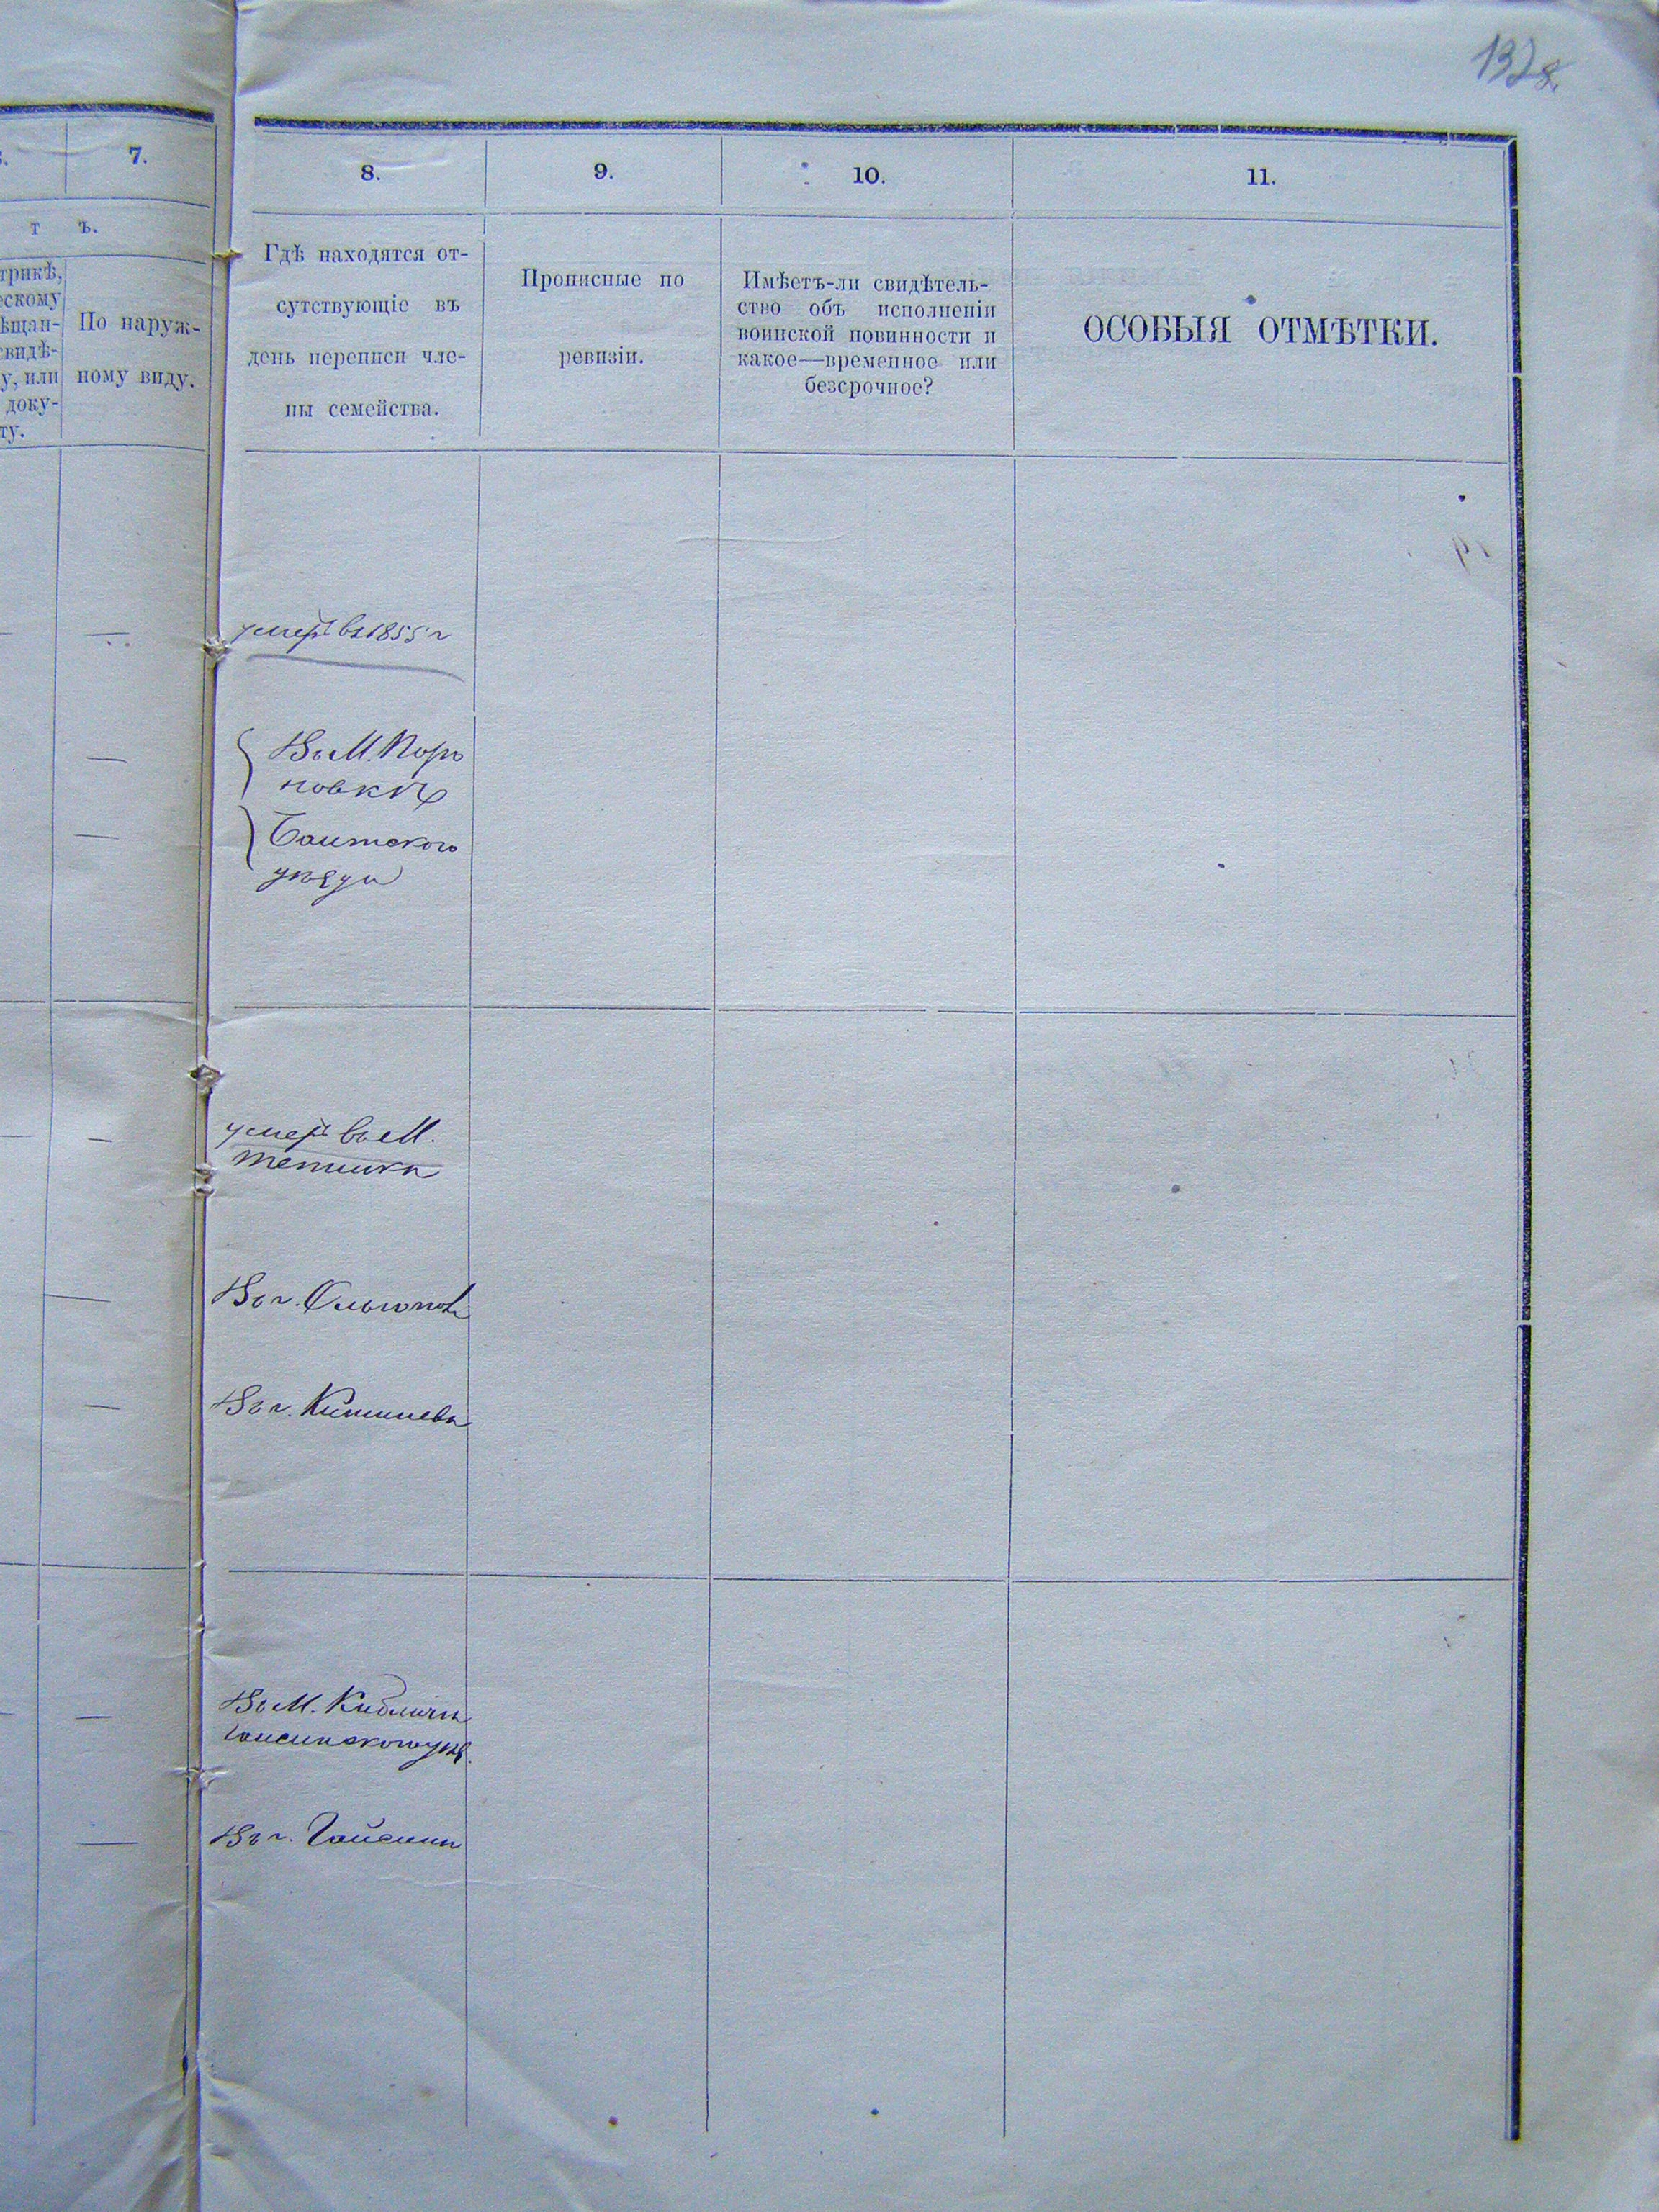 132
7.
8.
9.
10.
11.
т ъ.
трикѣ,
ескому
ѣщан-
свидѣ-
у, или
доку-
ту.
По наруж-
ному виду.
Гдѣ находятся от-
сутствующіе въ
день переписи чле-
ны семейства.
Прописные по
ревизіи.
Имѣетъ-ли свидѣтель-
ство объ исполненіи
воинской повинности и
какое—временное или
безсрочное?
ОСОБЫЯ ОТМѢТКИ.
умер въ 1855 г
Въ М.
Балтского
уѣзда
умер въ М.
Теплика
Въ г. Ольгополѣ
Въ г. Кишиневѣ
Въ М. Кибличѣ
Гайсинского уѣз.
Въ г. Гайсинѣ